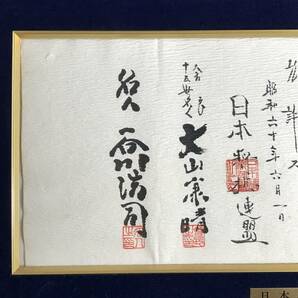 昭和六十年六月一日
日本将棋連盟
会長
十五世名人
大山康晴
名人
谷川浩司
日本